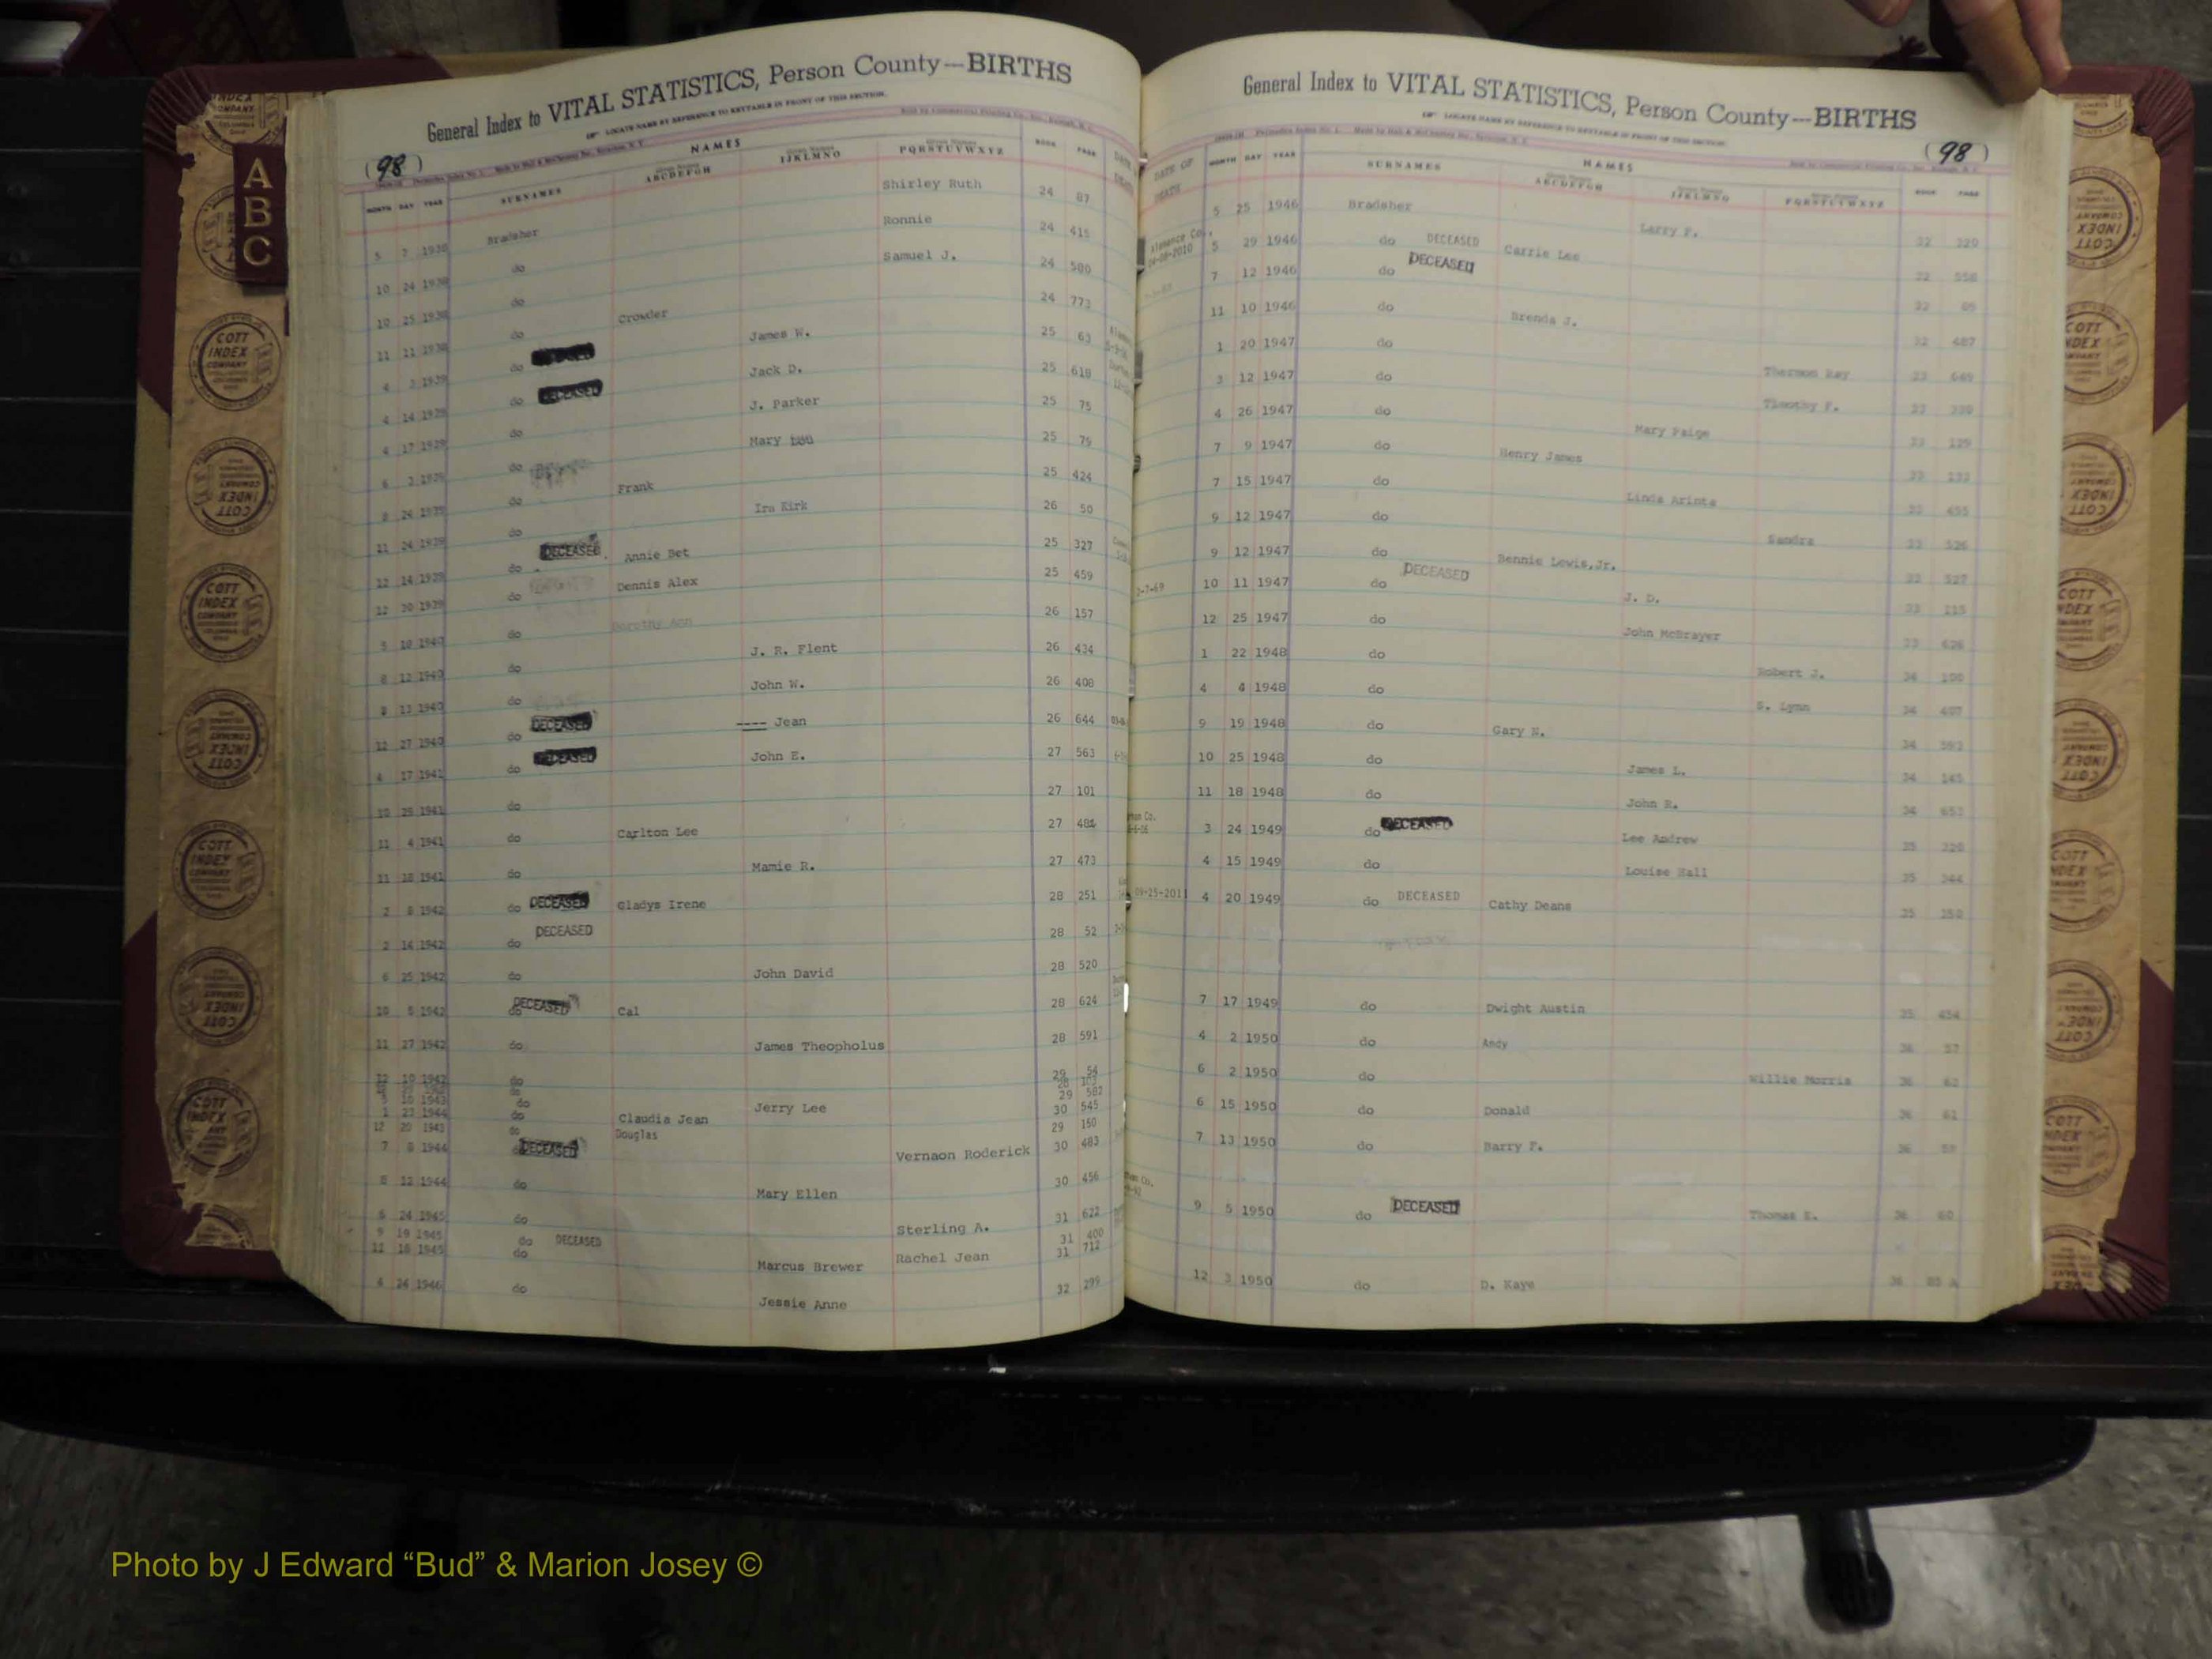 General Index to VITAL STATISTICS, Person County—BIRTHS
LOCATE NAME BY REFERENCE TO KEYTABLE IN FRONT OF THIS SECTION.
(98)
NAMES
MONTH DAY YEAR SURNAMES ABCDEFGH IJKLMNO PQRSTUVWXYZ BOOK PAGE
5 7 1938 Bradsher Shirley Ruth 24 87
10 24 1938 do Ronnie 24 415
10 25 1938 do Samuel J. 24 580
11 11 1938 do Crowder 24 773
4 3 1939 do James W. 25 63
4 14 1939 do DECEASED Jack D. 25 618
4 17 1939 do J. Parker 25 75
6 3 1939 do Mary 25 75
8 24 1939 do Frank 25 424
11 24 1939 do Ira Kirk 26 50
12 14 1939 do DECEASED Annie Bet 25 327
12 20 1939 do Dennis Alex 25 459
5 10 1940 do Dorothy Ann 26 157
8 12 1940 do J. R. Flent 26 434
8 13 1940 do John W. 26 408
12 27 1940 do DECEASED ---- Jean 26 644
4 17 1941 do DECEASED John E. 27 563
10 25 1941 do 27 101
11 4 1941 do Carlton Lee 27 484
11 18 1941 do Mamie R. 27 473
2 8 1942 do DECEASED Gladys Irene 28 251
2 14 1942 do DECEASED 28 52
6 25 1942 do John David 28 520
10 5 1942 do DECEASED Cal 28 624
11 27 1942 do James Theopholus 28 591
12 19 1942 do 29 54
do 29 582
5 10 1943 do Jerry Lee 30 545
1 23 1944 do Claudia Jean
12 20 1943 do Douglas 29 150
7 8 1944 DECEASED Vernaon Roderick 30 483
8 12 1944 do Mary Ellen 30 456
6 24 1945 do Sterling A. 31 622
9 19 1945 do DECEASED Rachel Jean 31 400
11 18 1945 do Marcus Brewer 31 712
4 24 1946 do Jessie Anne 32 299
General Index to VITAL STATISTICS, Person County—BIRTHS
LOCATE NAME BY REFERENCE TO KEYTABLE IN FRONT OF THIS SECTION.
(98)
NAMES
DATE OF DEATH MONTH DAY YEAR SURNAMES ABCDEFGH IJKLMNO PQRSTUVWXYZ BOOK PAGE
5 25 1946 Bradsher Larry P. 32 320
Alamance Co., 04-08-2010 5 29 1946 do DECEASED Carrie Lee 32 558
7 12 1946 do DECEASED
11 10 1946 do Brenda J. 32 487
1 20 1947 do Thermon Ray 33 649
3 12 1947 do Timothy F. 33 330
4 26 1947 do Mary Paige 33 129
7 9 1947 do Henry James 33 132
7 15 1947 do Linda Arinta 33 455
9 12 1947 do Sandra 33 526
9 12 1947 do Bennie Lewis,Jr. 33 527
2-7-69 10 11 1947 do DECEASED J. D. 33 115
12 25 1947 do John McBrayer 33 626
1 22 1948 do Robert J. 34 100
4 4 1948 do S. Lynn 34 487
9 19 1948 do Gary N. 34 593
10 25 1948 do James L. 34 145
11 18 1948 do John R. 34 653
3 24 1949 do DECEASED Lee Andrew 35 328
4 15 1949 do Louise Hall 35 344
09-25-2011 4 20 1949 do DECEASED Cathy Deans 35 350
7 17 1949 do Dwight Austin 35 454
4 2 1950 do Andy 36 57
6 2 1950 do Willie Morris 36 62
6 15 1950 do Donald 36 61
7 13 1950 do Barry F. 36 59
9 5 1950 do DECEASED Thomas E. 36 60
12 3 1950 do D. Kaye
A
B
C
COTT INDEX COMPANY
Photo by J Edward “Bud” & Marion Josey ©